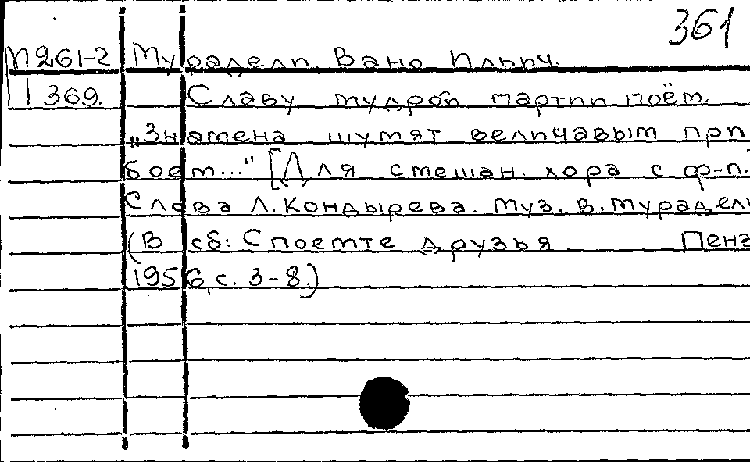 361
П261-2 Мурадели, Вано Ильич.
1369. Славу мудрой партии поём.
„Знамена шумят величавым при
боем..." [Для смешан. хора с ф-п.
Слова Л. Кондырева. Муз. В. Мурадели
(В сб: Споемте друзья Пенз
1956, с. 3-8.)